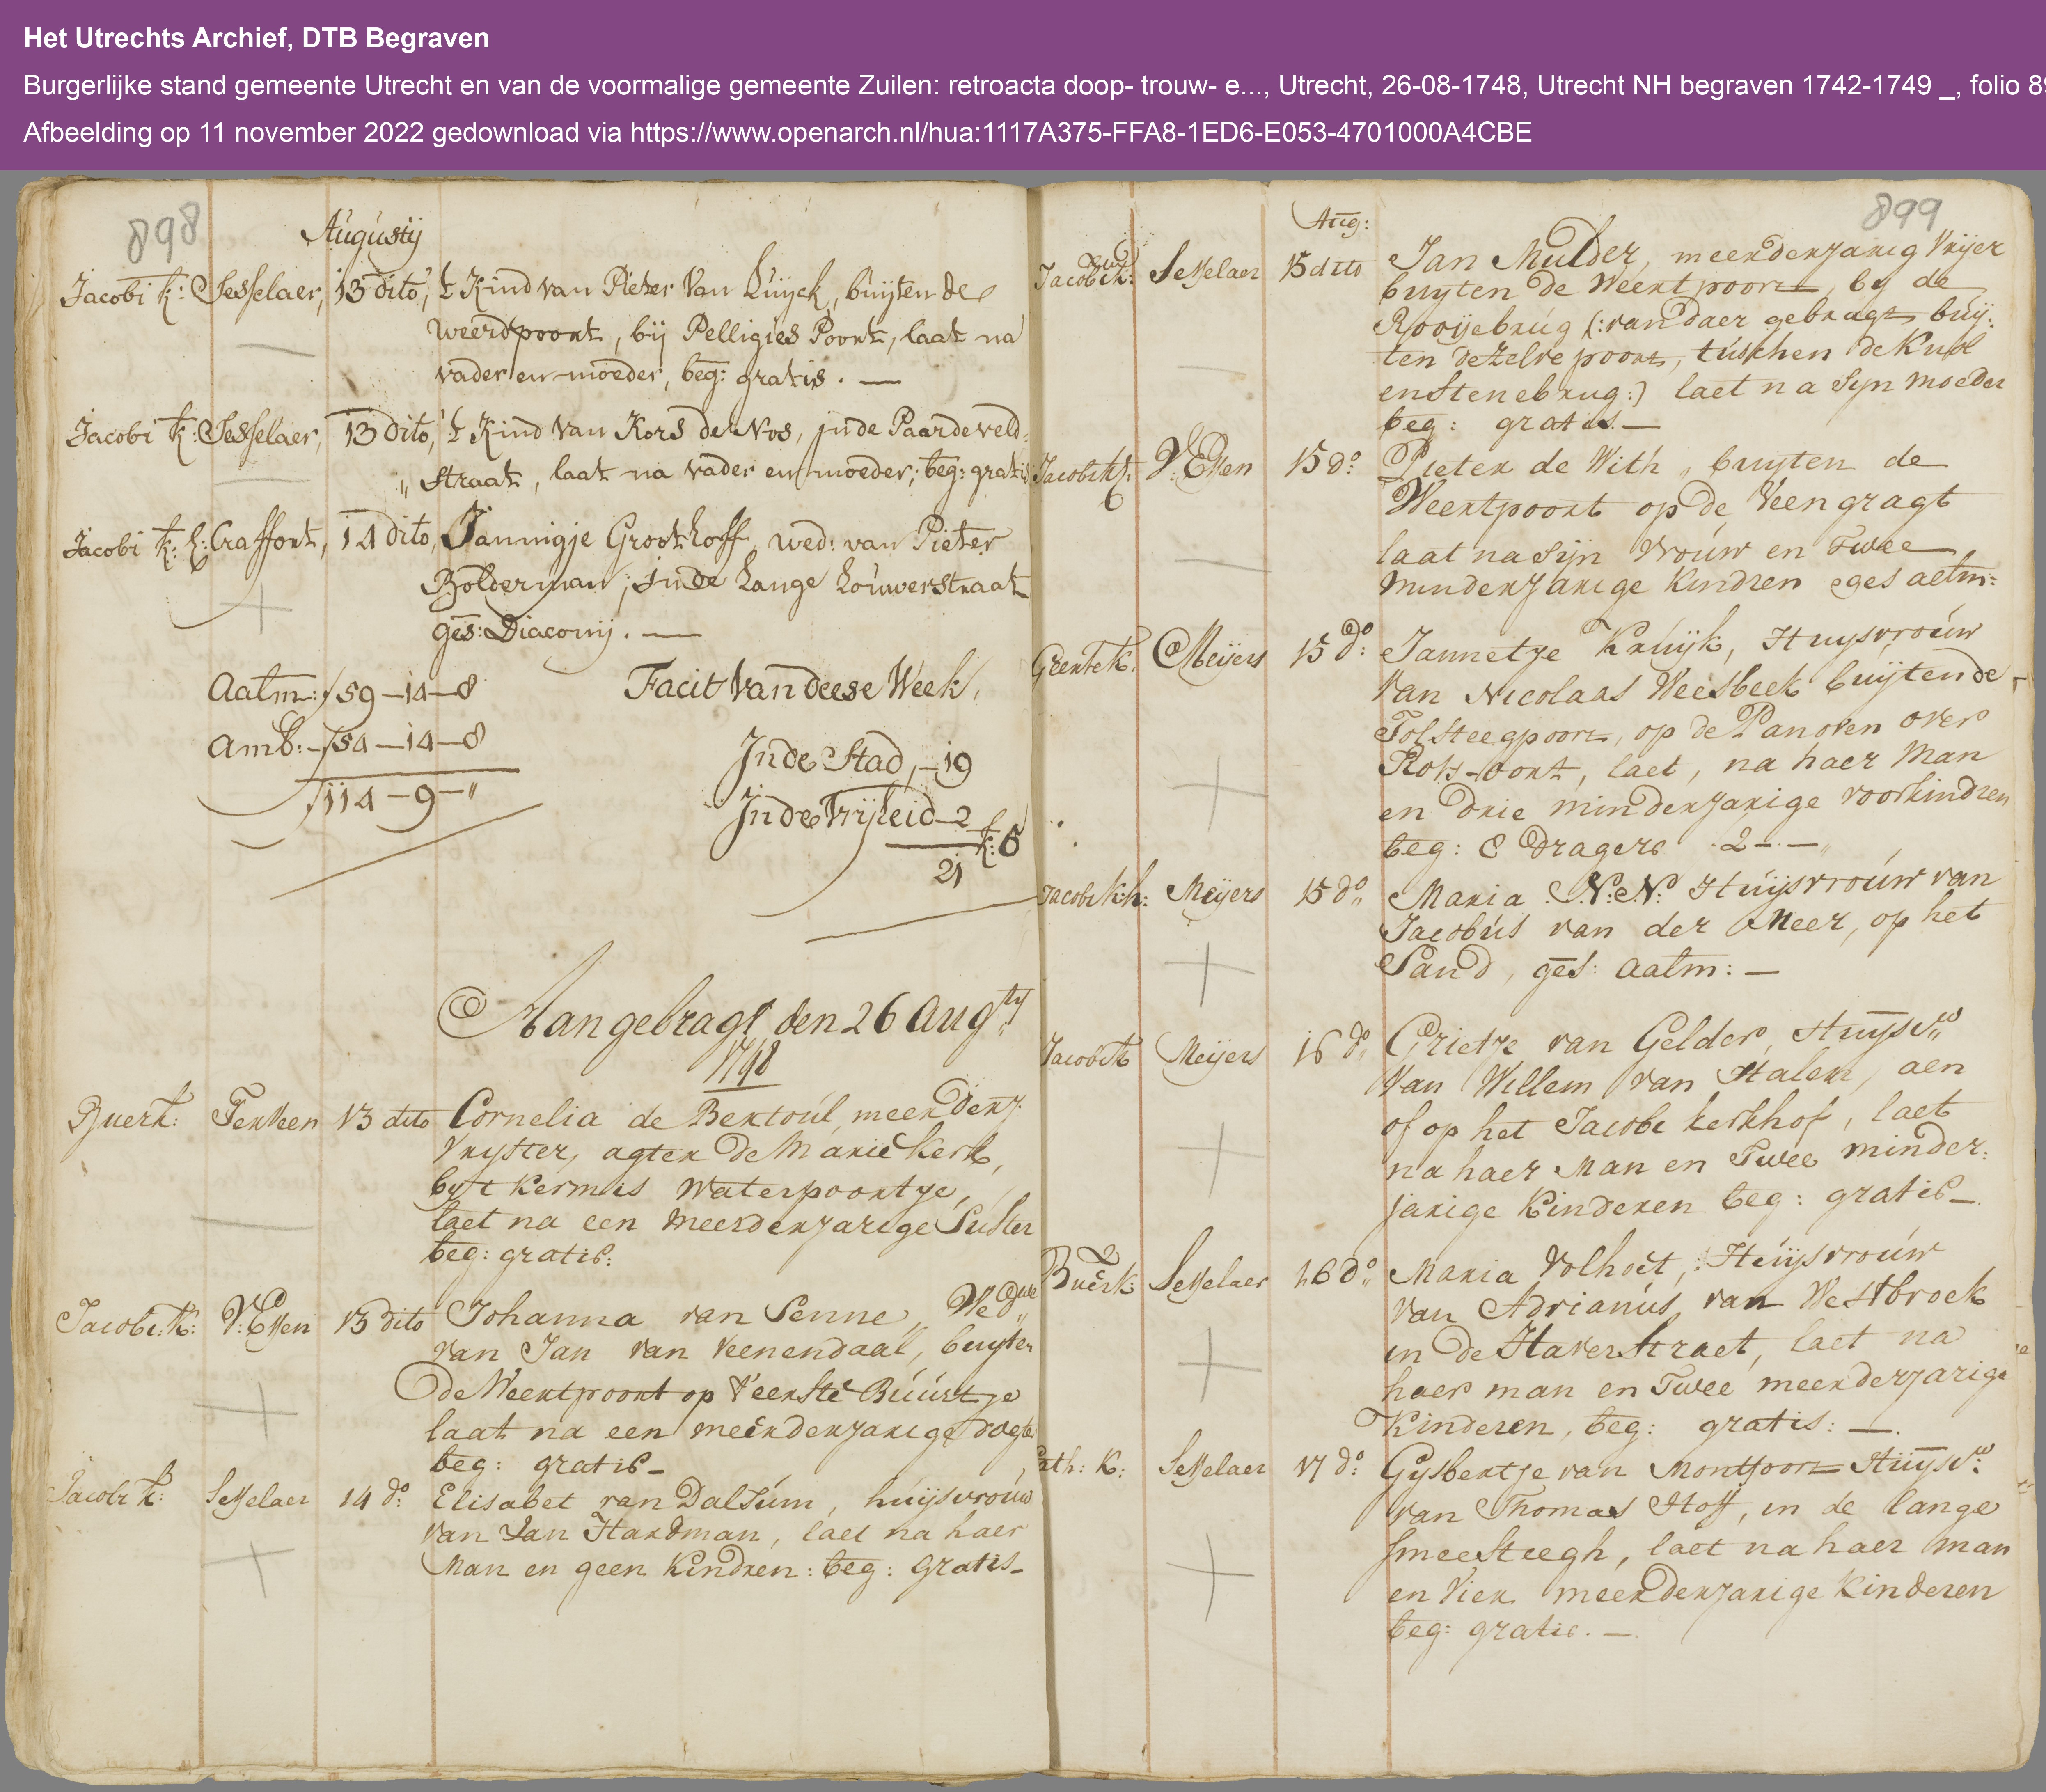 Het Utrechts Archief, DTB Begraven
Burgerlijke stand gemeente Utrecht en van de voormalige gemeente Zuilen: retroacta doop- trouw- e..., Utrecht, 26-08-1748, Utrecht NH begraven 1742-1749 _, folio 89
Afbeelding op 11 november 2022 gedownload via https://www.openarch.nl/hua:1117A375-FFA8-1ED6-E053-4701000A4CBE
898
Augustij
Jacobi k: Sesselaer, 13 dito, t Kind van Pieter Van Luijck, buijten de
weerdpoort, bij Pelligies Poort, laat na
vader en moeder, beg: gratis. —
Jacobi k: Sesselaer, 13 dito, t Kind van Kors de Vos, jnde Paardeveld-
straat, laat na vader en moeder; beg: gratis
Jacobi k: h: Craffort, 14 dito, Jannigje Groothoff, wed: van Pieter
Bolderman, jnde Lange Louwerstraat
ges: Diaconij. —
Aalm: f 59-14-8
Amb: - f 54-14-8
f 114-9-"
Facit Van deese Week,
Jnde Stad, - 19
Jnde Vrijheid - 2
21
k: 6
Aangebragt den 26 Augtij
1748
Buerk: Terveen 13 dito Cornelia de Bertoul, meerderj:
vryster, agter de Marie kerk,
by t Kermis waterpoortje,
laet na een meerderjarige Suster
beg: gratis:
Jacobi: k: V: Essen 13 dito Johanna van Senne, Wedwe
van Jan van Veenendaal, buyten
de Weertpoort op 't eerste Buurtje
laat na een meerderjarige dogter
beg: gratis -
Jacobi k: Sesselaer 14 do: Elisabet van Dalsum, huijsvrouw
van Jan Hardman, laet na haer
Man en geen Kindren: beg: gratis -
899
Aug:
Jacobi k: Sesselaer 15 dito Jan Mulder, meerderjarig Vrijer
buyten de Weertpoort, by de
Rooijebrug (: van daer gebragt buij:
ten dezelve poort, tuschen de Knol
en Stenebrug:) laet na Syn moeder
beg: gratis —
Jacobi k: V: Essen 15 do: Pieter de With, buyten de
Weertpoort op de Veengragt
laat na sijn vrouw en Twee
minderjarige Kindren ges aelm:
Geerte k: Meijers 15 do: Jannetje Kruijk, Huysvrouw
van Nicolaas Weesbeek buijten de
Tolsteegpoort, op de Panoven over
Rots-oort, laet, na haer Man
en drie minderjarige voorkindren
beg: 8 dragers 2 - -
Jacobi k: h: Meijers 15 do: Maria N: N: Huijsvrouw van
Jacobus van der Meer, op het
Sand, ges: aalm: —
Jacobi k Meijers 16 do: Grietje van Gelder, Huijsvw
van Willem van Stalen, aen
of op het Jacobi kerkhof, laet
na haer Man en Twee minder:
jarige Kinderen beg: gratis -
Buerk: Sesselaer 16 do: Maria Volhoet, Huijsvrouw
van Adrianus van Westbroek
in de Haverstraet, laet na
haer man en Twee meerderjarige
Kinderen, beg: gratis: —.
Cath: k: Sesselaer 17 do: Gysbertje van Montfoort Huijsvw
van Thomas Hoff, in de lange
smeesteegh, laet na haer man
en Vier meerderjarige Kinderen
beg: gratis. —